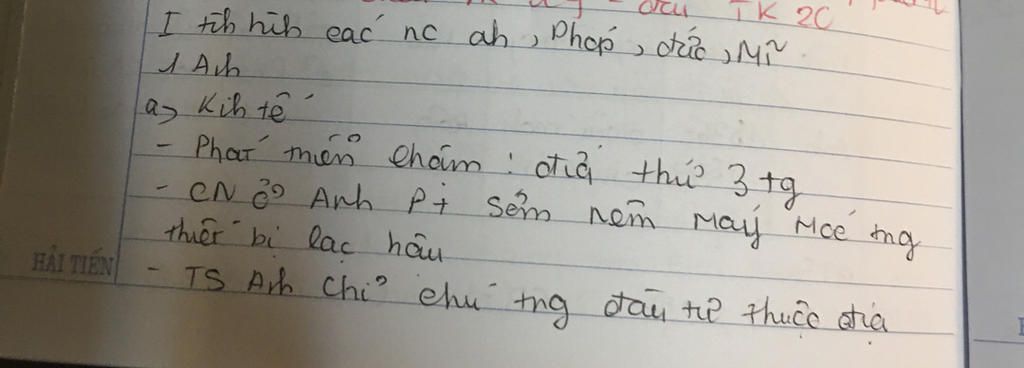 đầu TK 20
I tìh hìh các nc ah, Pháp, đức, Mĩ
1 Anh
a, Kih tế
- Phát triển chậm: đứg thứ 3 tg
- CN ở Anh Pt sớm nêm máy móc tng
thiết bị lạc hậu
HẢI TIẾN
- TS Anh chỉ chú tng đầu tư thuộc địa